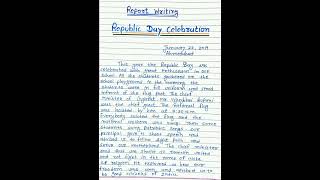 Report Writing
Republic Day Celebration
January 27, 2019
Ahmedabad
This year the Republic Day was
celebrated with great enthusiasm in our
School. All the students gathered on the
school playground in the morning. The
students were in full uniform and stood
infront of the flag post. The Chief
Minister of Gujarat Mr. Vijaybhai Rupani
was our chief guest. The National flag
was hoisted by him at 8:30 a.m.
Everybody saluted the flag and the
national anthem was sung. Then some
students sung Patriotic songs. Our
principal gave a short speech and
advised us to follow right path and
serve our motherland. The chief minister
said that we should all remain united
and not fight in the name of caste
and religion. He explained us how our
freedom was won and advised us to
be good citizens of India.